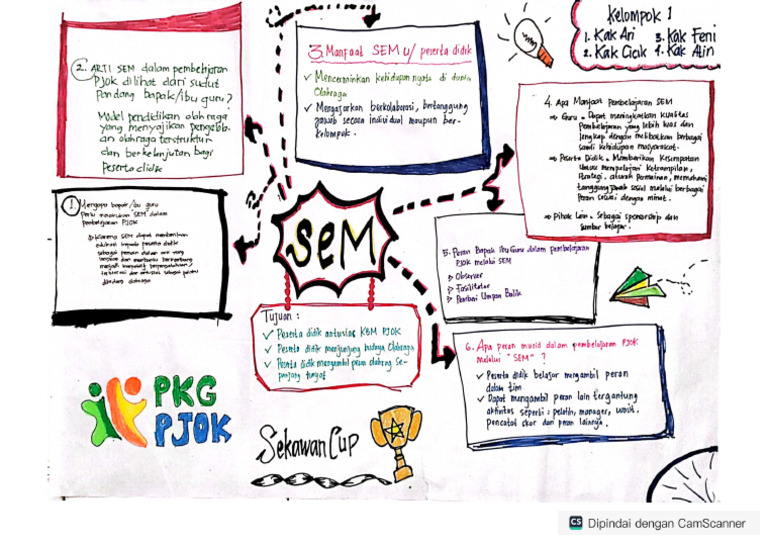 Kelompok 1
1. Kak Ari 3. Kak Feni
2. Kak Cicik 4. Kak Alin
2. ARTI SEM dalam pembelajaran
PJOK dilihat dari sudut
Pandang bapak/ibu guru?
Model pendidikan olahraga
yang menyajikan
olahraga terstruktur
dan berkelanjutan bagi
Peserta didik
3. Manfaat SEM u/ peserta didik
✓ Mencerminkan kehidupan nyata di dunia
Olahraga
✓ Mengajarkan berkolaborasi, bertanggung
jawab secara individual maupun ber-
kelompok.
4. Apa Manfaat Pembelajaran SEM
⇒ Guru. Dapat meningkatkan kualitas
Pembelajaran yang lebih luas dan
lengkap dengan melibatkan berbagai
sendi kehidupan masyarakat.
⇒ Peserta Didik. Memberikan Kesempatan
Untuk mempelajari Keterampilan,
Strategi, aturan Permainan, memahami
tanggung jawab sosial melalui berbagai
peran sesuai dengan minat.
⇒ Pihak Lain. Sebagai sponsorship dan
Sumber belajar.
1 Mengapa bapak/ibu guru
Perlu SEM dalam
Pembelajaran PJOK
Karena SEM dapat memberikan
edukasi kepada peserta didik
sebagai
SEM
5. Peran Bapak Ibu Guru dalam pembelajaran
PJOK melalui SEM
Observer
Fasilitator
Pemberi Umpan Balik
Tujuan :
✓ Peserta didik antusias KBM PJOK
✓ Peserta didik menjunjung budaya Olahraga
✓ Peserta didik mengambil peran olahraga Se-
panjang hayat
6. Apa peran murid dalam pembelajaran PJOK
melalui "SEM" ?
✓ Peserta didik belajar mengambil peran
dalam tim
✓ Dapat mengambil peran lain tergantung
aktivitas seperti : pelatih, manager, wasit,
Pencatat skor dan peran lainnya.
PKG
PJOK
Sekawan Cup
CS Dipindai dengan CamScanner